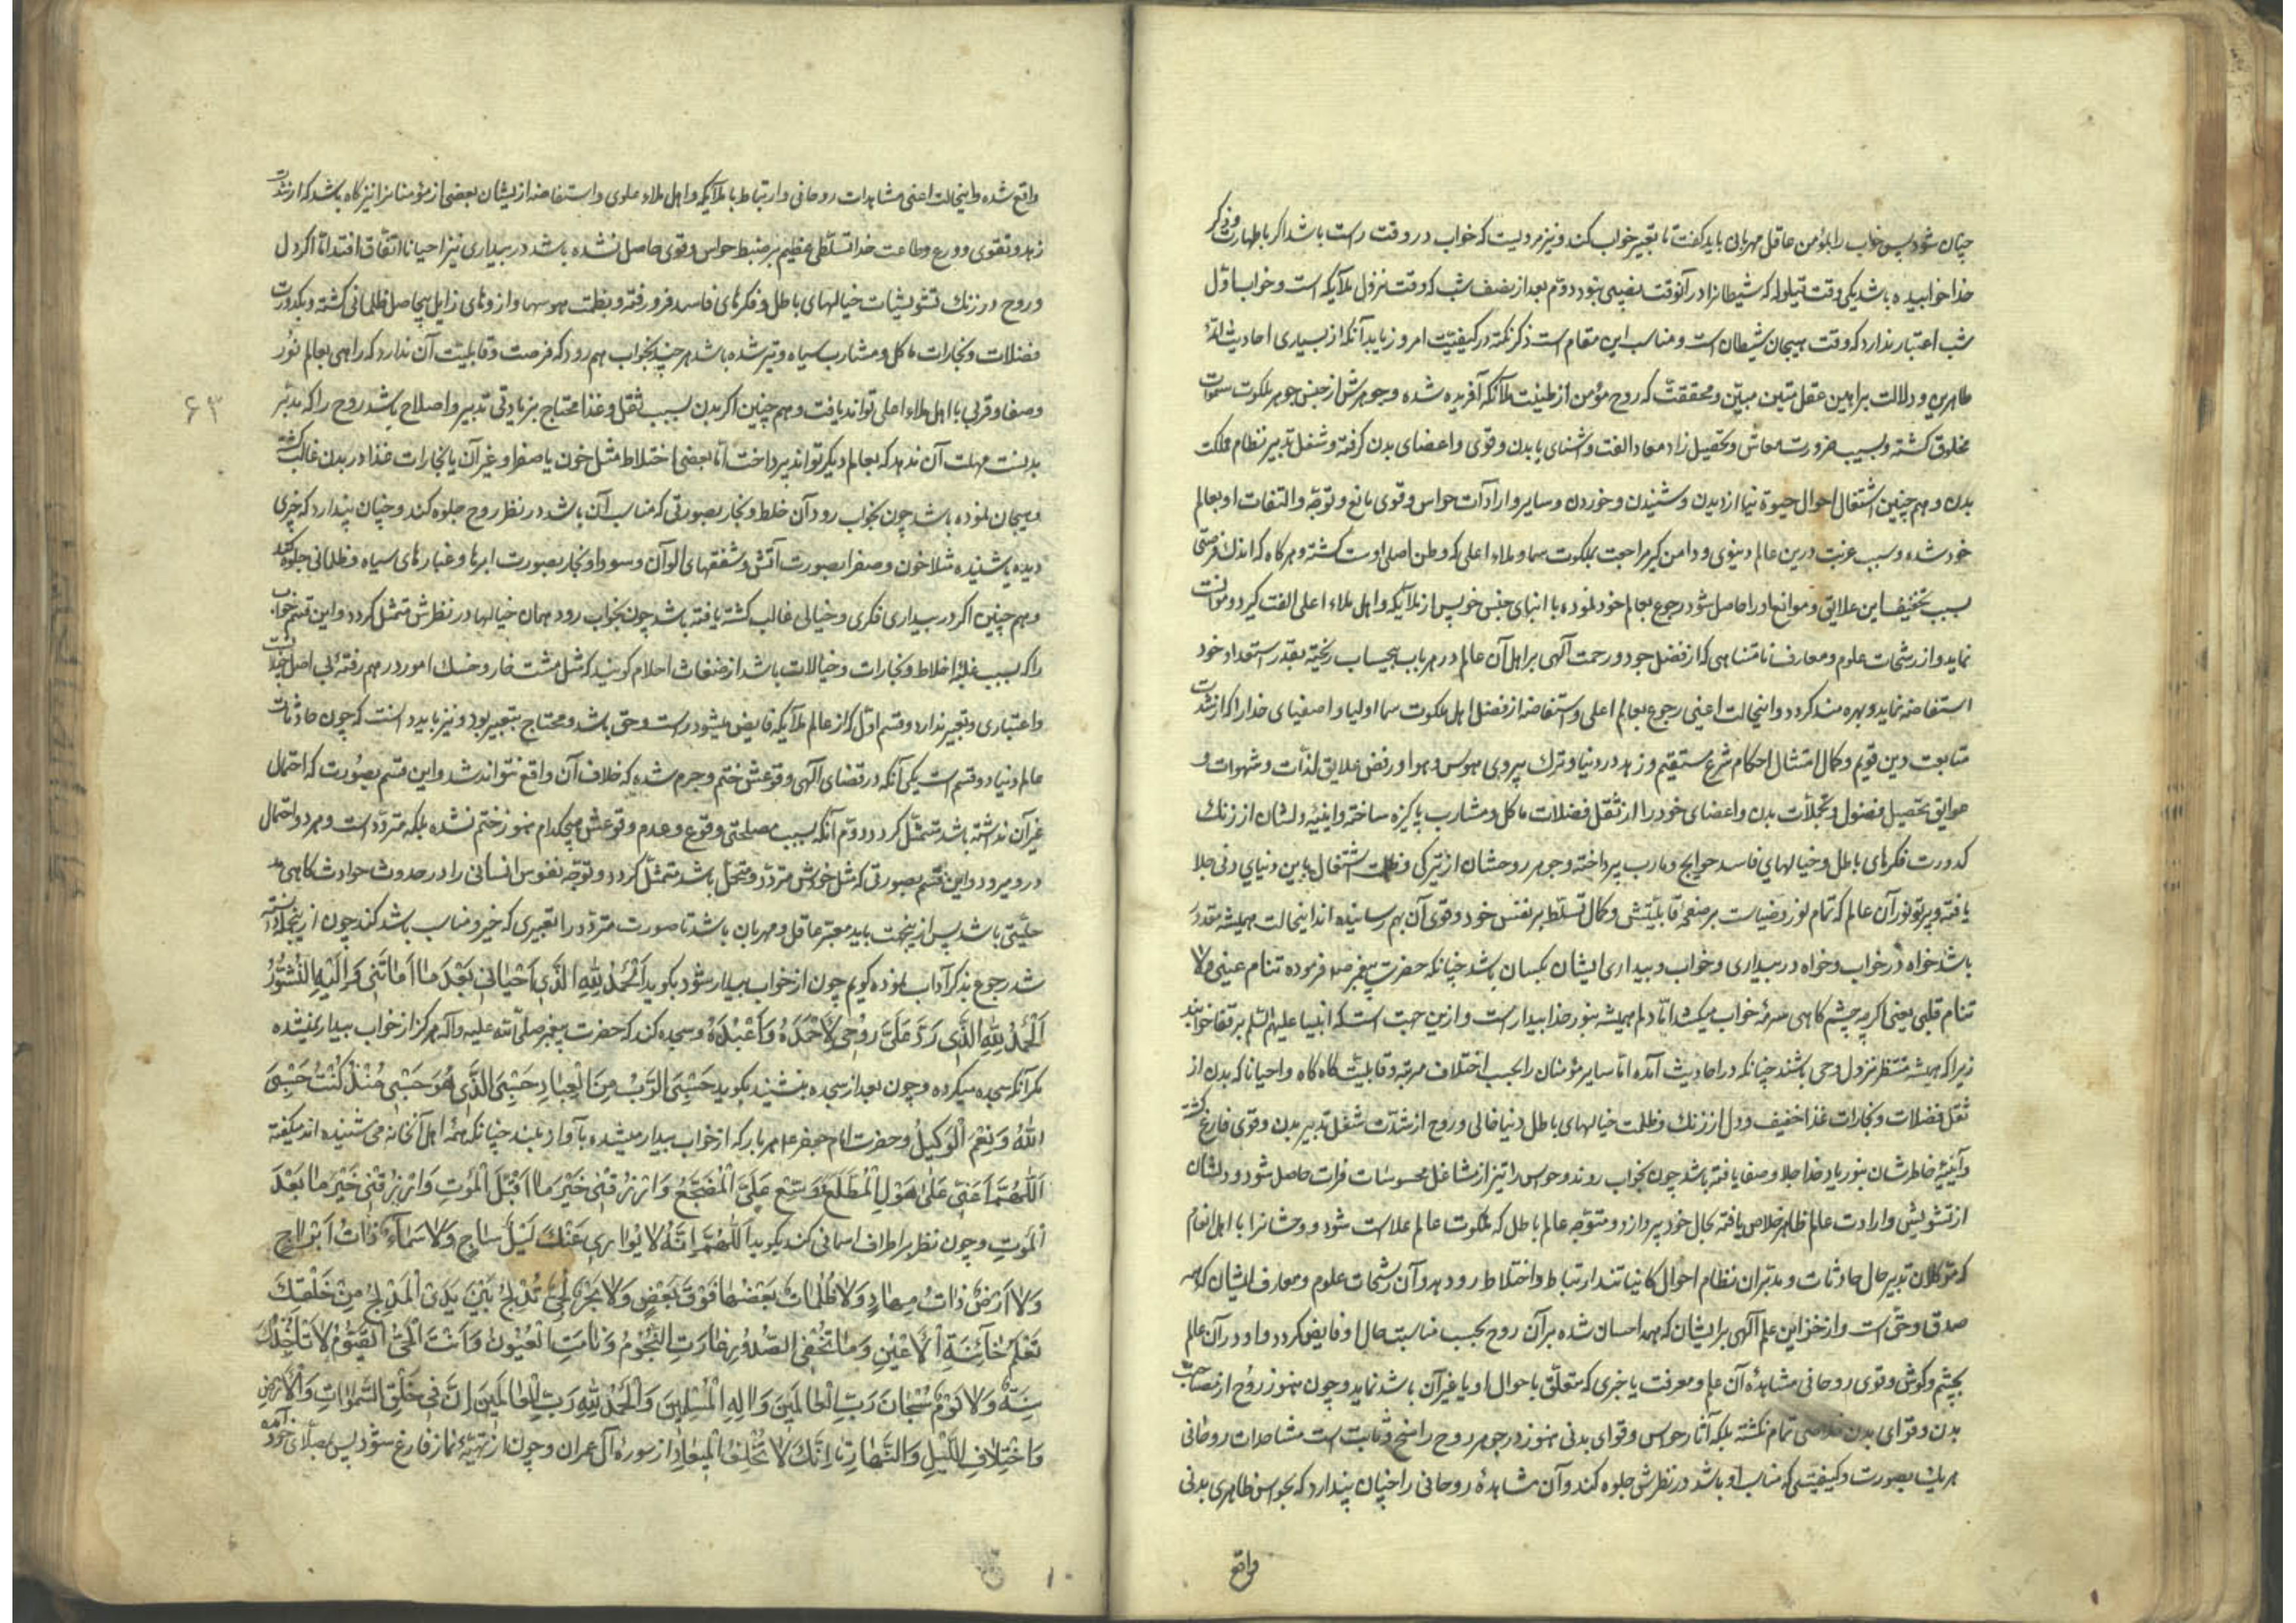 چنان شود پس خواب را بمؤمن عاقل مهربان باید گفت تا تعبیر خواب کند و نیز مرویست که خواب در دو وقت راست باشد اگر با طهارت و ذکر
خدا خوابیده باشد یکی وقت قیلوله که شیطانرا در آنوقت نصیبی نبود دوّم بعد از نصف شب که وقت نزول ملآیکه است و خواب اوّل
شب اعتبار ندارد که وقت هیجان شیطان است و مناسب این مقام است ذکر نکته در کیفیّت امر رؤیا بدآنکه از بسیاری احادیث ائمّهٔ
طاهرین و دلالت براهین عقل متین مبیّن و محققست که روح مؤمن از طینت ملآئکه آفریده شده و جوهرش از جنس جوهر ملکوت سموات
مخلوق گشته و بسبب ضرورت معاش و تحصیل زاد معاد الفت و آشنای با بدن و قوی و اعضای بدن گرفته و شغل تدبیر نظام مملکت
بدن و هم چنین اشتغال احوال حیوة دنیا از دیدن و شنیدن و خوردن و سایر وارادات حواس و قوی مانع و توجّه و التفات او بعالم
خود شده و سبب غربت درین عالم دنیوی و دامن گیر مراجعت بملکوت سما و ملاء اعلی که وطن اصلی اوست گشته و هر گاه که اندک فرصتی
بسبب تخفیف این علایق و موانع او را حاصل شود رجوع بعالم خود نموده با ابنای جنس خویس از ملآیکه و اهل ملاء اعلی الفت گیرد و موانست
نماید و از رشحات علوم و معارف نامتناهی که از فضل جود و رحمت آلهی بر اهل آن عالم در هر باب بیحساب ریخته بقدر استعداد خود
استفاضه نماید و بهره مند گردد و اینحالت اعنی رجوع بعالم اعلی و استفاضه از فضل اهل ملکوت سما اولیا و اصفیای خدا را که از شدّت
متابعت دین قویم و کمال امتثال احکام شرع مستقیم و زهد در دنیا و ترک پیروی هوس و هوا و رفض علایق لذّات و شهوات و
عوایق تحصیل فضول و تجملّات بدن و اعضای خود را از ثقل فضلات ماکل و مشارب پاکیزه ساخته و اینیهٔ دلشان از زنک
کدورت فکرهای باطل و خیالهای فاسد حوایج و مارب پرداخته و جوهر روحشان از تیرگی و ظلمت اشتغال باین دنیای دنی جلا
یافته و پرتو نور آن عالم که تمام نور و ضیاست بر صفحهٔ قابلیّتش و کمال تسلّط بر نفس خود و قوی آن بهم رسانیده اند اینحالت همیشه مقدور
باشد خواه در خواب و خواه در بیداری و خواب و بیداری ایشان یکسان باشد چنانکه حضرت پیغمبر صه فرموده تنام عینی و لا
تنام قلبی یعنی اگر چه چشم گاهی سرمهٔ خواب میکشد امّا دلم همیشه بنور خدا بیدار است و ازین جهت است که انبیا علیهم السّلم بر قفا خوابند
زیرا که همیشه منتظر نزول وحی باشند چنانکه در احادیث آمده امّا سایر مؤمنان را بحسب اختلاف مرتبه و قابلیّت گاه گاه و احیانا که بدن از
ثقل فضلات و بخارات غذا خفیف و دل از زنک و ظلمت خیالهای باطل دنیا خالی و روح از شدّت شغل تدبیر بدن و قوی فارغ گشته
و آینیهٔ خاطرشان بنور یاد خدا جلا و صفا یافته باشد چون بخواب روند و حوس را نیز از مشاغل محسوسات فراغت حاصل شود و دلشان
از تشویش واردات عالم ظاهر خلاص یافته بحال خود پردازد و متوّجه عالم باطن که ملکوت عالم علاست شود و روحشانرا با اهل انعام
که متوکلان تدبیر حال حادثات و مدبّران نظام احوال کاینا تند ارتباط و اختلاط رو دهد و آن رشحات علوم و معارف ایشان که همه
صدق و حق است و از خزاین علم آلهی بر ایشان که بهمه احسان شده بر آن روح بحسب مناسبت حال او فایض گردد و او در آن عالم
بچشم و گوش و قوی روحانی مشاهدهٔ آن علم و معرفت یا خبری که متعلّق باحوال او یا غیر آن باشد نماید و چون هنوز روح از مصاحبت
بدن و قوای بدن خلاصی تمام نگشته بلکه آثار حوس و قوای بدنی هنوز در جوهر روح راسخ و ثابت است مشاهدات روحانی
هر یک بصورت و کیفیتی که مناسب او باشد در نظرش جلوه کند و آن مشاهدهٔ روحانی را چنان پندارد که بحواس ظاهری بدنی
واقع
واقع شده و اینحالت اعنی مشاهدات روحانی و ارتباط با ملآیکه و اهل ملاء علوی و استفاضه از یشان بعضی از مؤمنانرا نیز گاه باشد که از شدّت
زهد و تقوی و ورع و طاعت خدا تسلّطی عظیم بر ضبط حواس و قوی حاصل شده باشد در بیداری نیز احیانا اتفّاق افتد امّا اگر دل
و روح در زنک تشویشات خیالهای باطل و فکرهای فاسد فرو رفته و بظلمت هوسها و ارزوهای زایل بیحاصل ظلمانی گشته و بکدورت
فضلات و بخارات ماکل و مشارب سیاه و تیره شده باشد هر چند بخواب هم رود که فرصت و قابلیّت آن ندارد که راهی بعالم نور
و صفا و قربی با اهل ملاء اعلی تواند یافت و هم چنین اگر بدن بسبب ثقل و غذا محتاج بزیادتی تدبیر و اصلاح باشد روح را که مدبّر
۶۳
بدنست مهلت آن ندهد که بعالم دیگر تواند پرداخت امّا بعضی اختلاط مثل خون یا صفرا و غیر آن یا بخارات غذا در بدن غالب گشته
و هیجان نموده باشد چون بخواب رود آن خلط و بخار بصورتی که مناسب آن باشد در نظر روح جلوه کند و چنان پندارد که چیزی
دیده یا شنیده مثلا خون و صفرا بصورت آتش و شفقهای الوآن و سودا و بخار بصورت ابرها و غبارهای سیاه و ظلمانی جلوه کند
و هم چنین اگر در بیداری فکری و خیالی غالب گشته یافته باشد چون بخواب رود همان خیالها در نظرش متمثّل گردد و این قسم خواب
را که بسبب غلبهٔ اخلاط و بخارات و خیالات باشد از ضغاث احلام گویند که مثل مشت خار و خسک امور در هم رفتهٔ بی اصل است
و اعتباری و تعبیر ندارد و قسم اوّل که از عالم ملآیکه فایض میشود راست و حق باشد و محتاج بتعبیر بود و نیز باید دانست که چون حادثات
عالم دنیا دو قسم است یکی آنکه در قضای آلهی وقوعش ختم و جزم شده که خلاف آن واقع نتواند شد و این قسم بصورت که احتمال
غیر آن نداشته باشد متمثّل گردد دوّم آنکه بسبب مصلحتی وقوع و عدم وقوعش هیچکدام هنوز ختم نشده بلکه متردّد است و هر دو احتمال
در و میرود و این قسم بصورتی که مثل خودش متردّد و متحمّل باشد متمثّل گردد و توجّه نفوس انسانی را در حدوث حوادث گاهی مد
خلیّتی باشد پس ازینجهت باید معبّر عاقل و مهربان باشد تا صورت متردّد را تعبیری که خیر و مناسب باشد کند چون ازینجا دانسته
شد رجوع بذکر آداب نموده گویم چون از خواب بیدار شود بگوید اَلْحَمْدُ لِلّٰهِ الَّذی اَحْیٰانی بَعْدَ مٰا اَمٰاتَنی وَ اِلَیْهِ النُّشُورُ
اَلْحَمْدُ لِلّٰهِ الَّذی رَدَّ عَلَیَّ رُوحی لِاَحْمَدَهُ وَ اَعْبُدَهُ و سجده کند که حضرت پیغمبر صلّی اللّه علیه و آله هرگز از خواب بیدار نمیشده
مگر آنکه سجده میکرده و چون بعد از سجده بنشیند بگوید حَسْبِیَ الرَّبُّ مِنَ الْعِبٰادِ حَسْبِیَ الَّذی هُوَ حَسْبی مُنْذُ کُنْتُ حَسْبِیَ
اللّٰهُ وَ نِعْمَ الْوَکیلُ و حضرت امام جعفر عم هر بار که از خواب بیدار میشده بآواز بلند چنانکه همهٔ اهل آنخانه می شنیده اند میگفته
اَللّٰهُمَّ اَعِنّی عَلیٰ هَوْلِ الْمُطَّلَعِ وَ وَسِّعْ عَلَیَّ الْمَضْجَعَ وَ ارْزُقْنی خَیْرَ مٰا قَبْلَ الْمَوْتِ وَ ارْزُقْنی خَیْرَ مٰا بَعْدَ
الْمَوْتِ و چون نظر بر اطراف اسمانی کند بگوید اَللّٰهُمَّ اِنَّهُ لا یُوٰاری عَنْکَ لَیْلٌ سٰاجٍ وَ لا سَمٰآءٌ ذٰاتُ اَبْرٰاجٍ
وَ لا اَرْضٌ ذٰاتُ مِهٰادٍ وَ لا ظُلُمٰاتٌ بَعْضُهٰا فَوْقَ بَعْضٍ وَ لا بَحْرٌ لُجِّیٌّ تُدْلِجُ بَیْنَ یَدَیِ الْمُدْلِجِ مِنْ خَلْقِکَ
تَعْلَمُ خٰآئِنَةَ الْاَعْیُنِ وَ مٰا تُخْفِی الصُّدُورُ غٰارَتِ النُّجُومُ وَ نٰامَتِ الْعُیُونُ وَ اَنْتَ الْحَیُّ الْقَیُّومُ لا تَأْخُذُکَ
سِنَةٌ وَ لا نَوْمٌ سُبْحٰانَ رَبِّ الْعٰالَمینَ وَ اِلٰهِ الْمُرْسَلینَ وَ الْحَمْدُ لِلّٰهِ رَبِّ الْعٰالَمینَ اِنَّ فی خَلْقِ السَّمٰوٰاتِ وَ الْاَرْضِ
وَ اخْتِلافِ اللَّیْلِ وَ النَّهٰارِ تا اِنَّکَ لا تُخْلِفُ الْمیعٰادَ از سورهٔ آل عمران و چون از تهیّهٔ نماز فارغ شود پس بمصلّای خود آمده